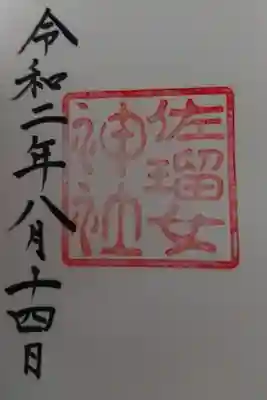 佐瑠女
神社
令和二年八月十四日